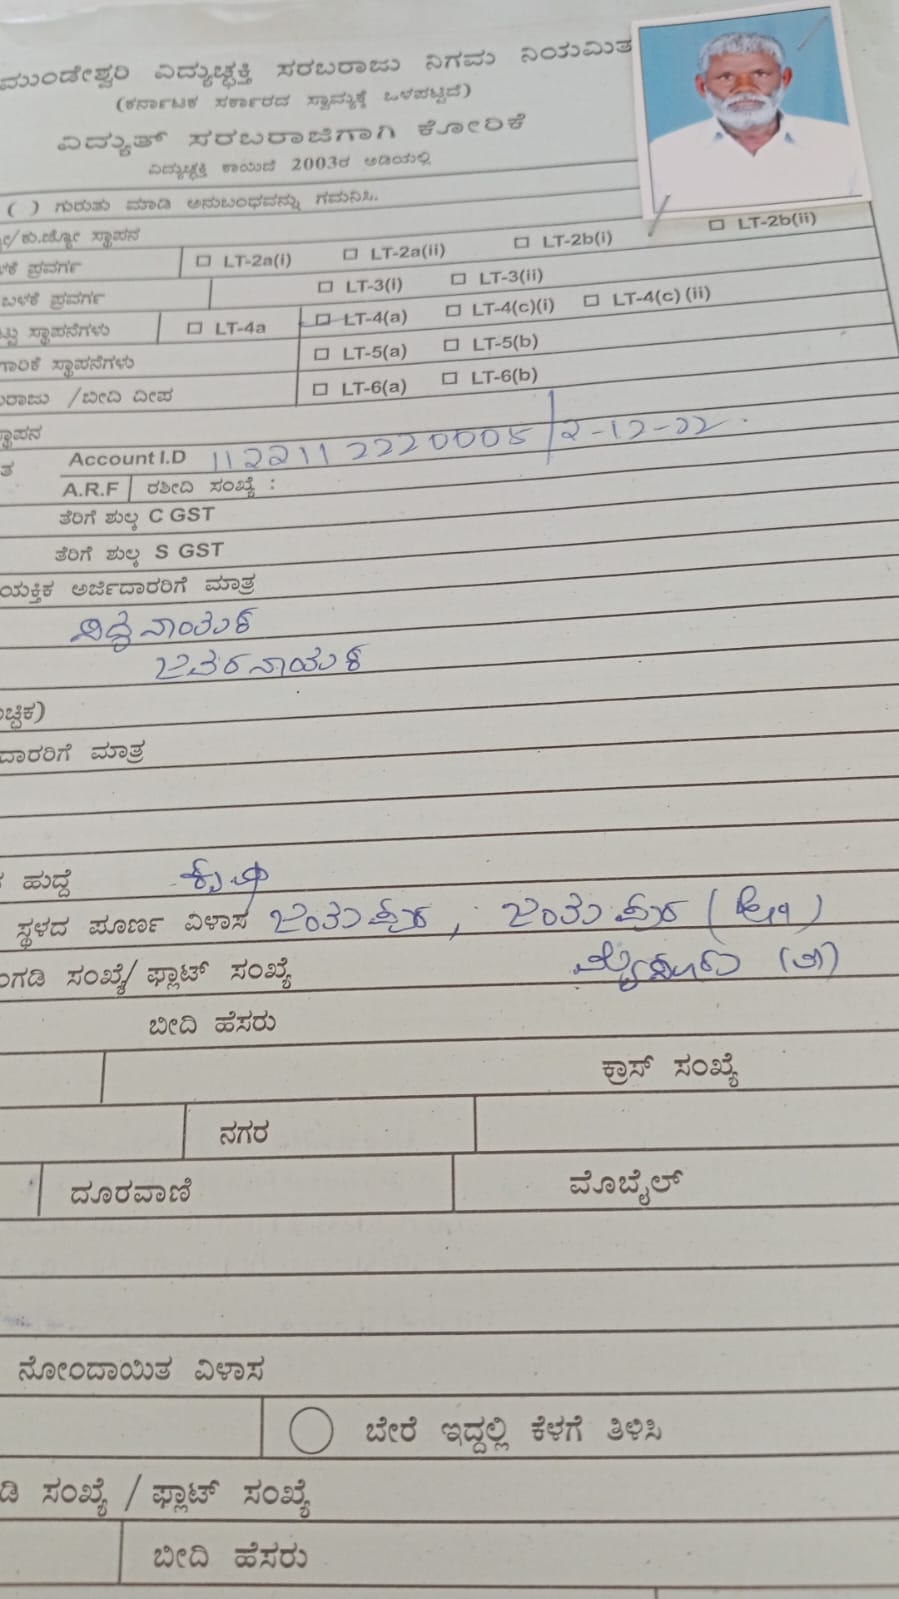 ಮುಂಡೇಶ್ವರಿ ವಿದ್ಯುಚ್ಛಕ್ತಿ ಸರಬರಾಜು ನಿಗಮ ನಿಯಮಿತ
(ಕರ್ನಾಟಕ ಸರ್ಕಾರದ ಸ್ವಾಮ್ಯಕ್ಕೆ ಒಳಪಟ್ಟಿದೆ)
ವಿದ್ಯುತ್ ಸರಬರಾಜಿಗಾಗಿ ಕೋರಿಕೆ
ವಿದ್ಯುಚ್ಛಕ್ತಿ ಕಾಯಿದೆ 2003ರ ಅಡಿಯಲ್ಲಿ
( ) ಗುರುತು ಮಾಡಿ ಅನುಬಂಧವನ್ನು ಗಮನಿಸಿ.
/ಕು.ಜ್ಯೋ ಸ್ಥಾಪನ
ಪ್ರವರ್ಗ LT-2a(i) LT-2a(ii) LT-2b(i) LT-2b(ii)
ಬಳಕೆ ಪ್ರವರ್ಗ LT-3(i) LT-3(ii)
ಸ್ಥಾಪನೆಗಳು LT-4a LT-4(a) LT-4(c)(i) LT-4(c) (ii)
ಗಾರಿಕೆ ಸ್ಥಾಪನೆಗಳು LT-5(a) LT-5(b)
ರಾಜು /ಬೀದಿ ದೀಪ LT-6(a) LT-6(b)
ಸ್ಥಾಪನ
ತ Account I.D 1122112220005/2-12-22.
A.R.F ರಶೀದಿ ಸಂಖ್ಯೆ :
ತೆರಿಗೆ ಶುಲ್ಕ C GST
ತೆರಿಗೆ ಶುಲ್ಕ S GST
ಯಕ್ತಿಕ ಅರ್ಜಿದಾರರಿಗೆ ಮಾತ್ರ
ಸಿದ್ದನಾಯಕ
ಜವರನಾಯಕ
ಚ್ಛಿಕ)
ದಾರರಿಗೆ ಮಾತ್ರ
ಹುದ್ದೆ ಕೃಷಿ
ಸ್ಥಳದ ಪೂರ್ಣ ವಿಳಾಸ ಜಯಪುರ, ಜಯಪುರ (ಹೋ)
ಗಡಿ ಸಂಖ್ಯೆ/ ಫ್ಲಾಟ್ ಸಂಖ್ಯೆ ಮೈಸೂರು (ತಾ)
ಬೀದಿ ಹೆಸರು
ಕ್ರಾಸ್ ಸಂಖ್ಯೆ
ನಗರ
ದೂರವಾಣಿ ಮೊಬೈಲ್
ನೋಂದಾಯಿತ ವಿಳಾಸ
ಬೇರೆ ಇದ್ದಲ್ಲಿ ಕೆಳಗೆ ತಿಳಿಸಿ
ಡಿ ಸಂಖ್ಯೆ / ಫ್ಲಾಟ್ ಸಂಖ್ಯೆ
ಬೀದಿ ಹೆಸರು